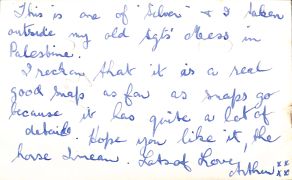 This is one of "Silver" & I taken
outside my old Sgts' Mess in
Palestine.
I reckon that it is a real
good snap as far as snaps go
because it has quite a lot of
details. Hope you like it, the
horse I mean. Lots of Love
Arthur xx
xx